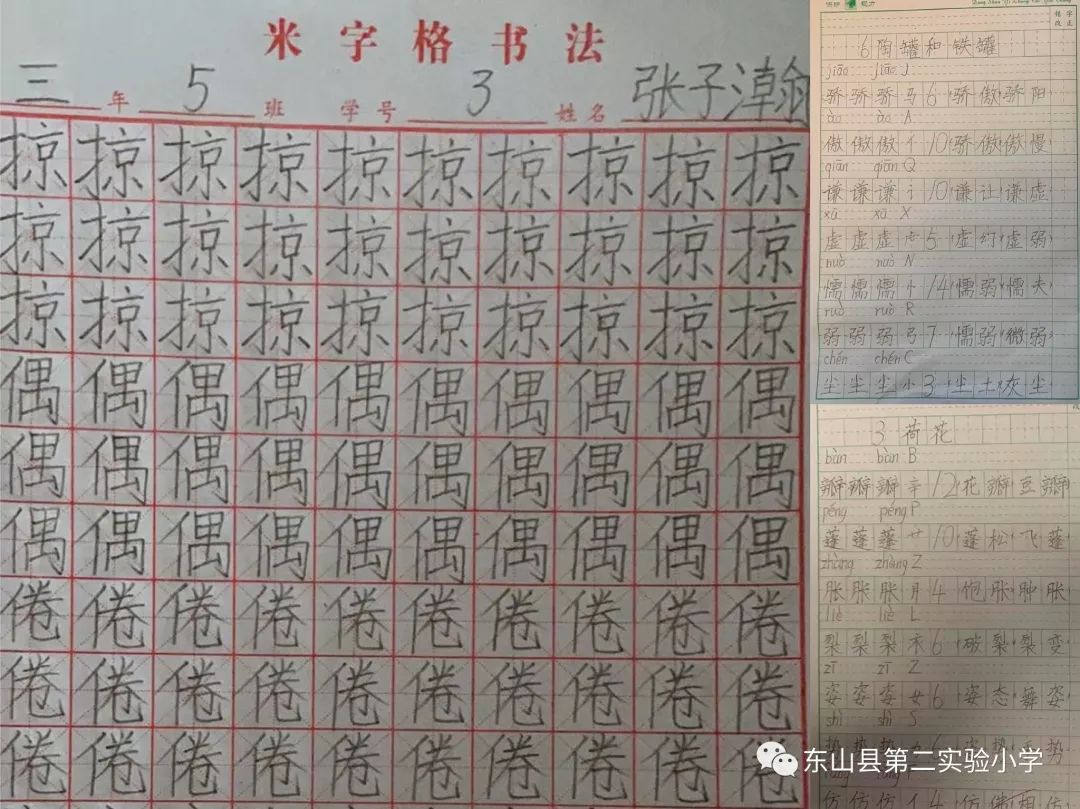 米字格书法
三年 5班 学号 3 姓名 张子瀚
掠掠掠掠掠掠掠掠掠掠
掠掠掠掠掠掠掠掠掠掠
掠掠掠掠掠掠掠掠掠掠
偶偶偶偶偶偶偶偶偶偶
偶偶偶偶偶偶偶偶偶偶
偶偶偶偶偶偶偶偶偶偶
倦倦倦倦倦倦倦倦倦倦
倦倦倦倦倦倦倦倦倦倦
倦倦倦倦倦倦倦倦倦
6 陶罐和铁罐
jiāo jiāo J
骄骄骄马6骄傲骄阳
ào ào A
傲傲傲亻10骄傲傲慢
qiān qiān Q
谦谦谦讠10谦让谦虚
xū xū X
虚虚虚虍5虚幻虚弱
nuò nuò N
懦懦懦忄14懦弱懦夫
ruò ruò R
弱弱弱弓7懦弱微弱
chén chén C
尘尘尘小3尘土灰尘
3 荷花
bàn bàn B
瓣瓣瓣辛12花瓣豆瓣
péng péng P
蓬蓬蓬艹10蓬松飞蓬
zhàng zhàng Z
胀胀胀月4饱胀肿胀
liè liè L
裂裂裂衣6破裂裂变
zī zī Z
姿姿姿女6姿态舞姿
shì shì S
势势势力6姿势
仿仿仿亻4仿佛相仿
东山县第二实验小学